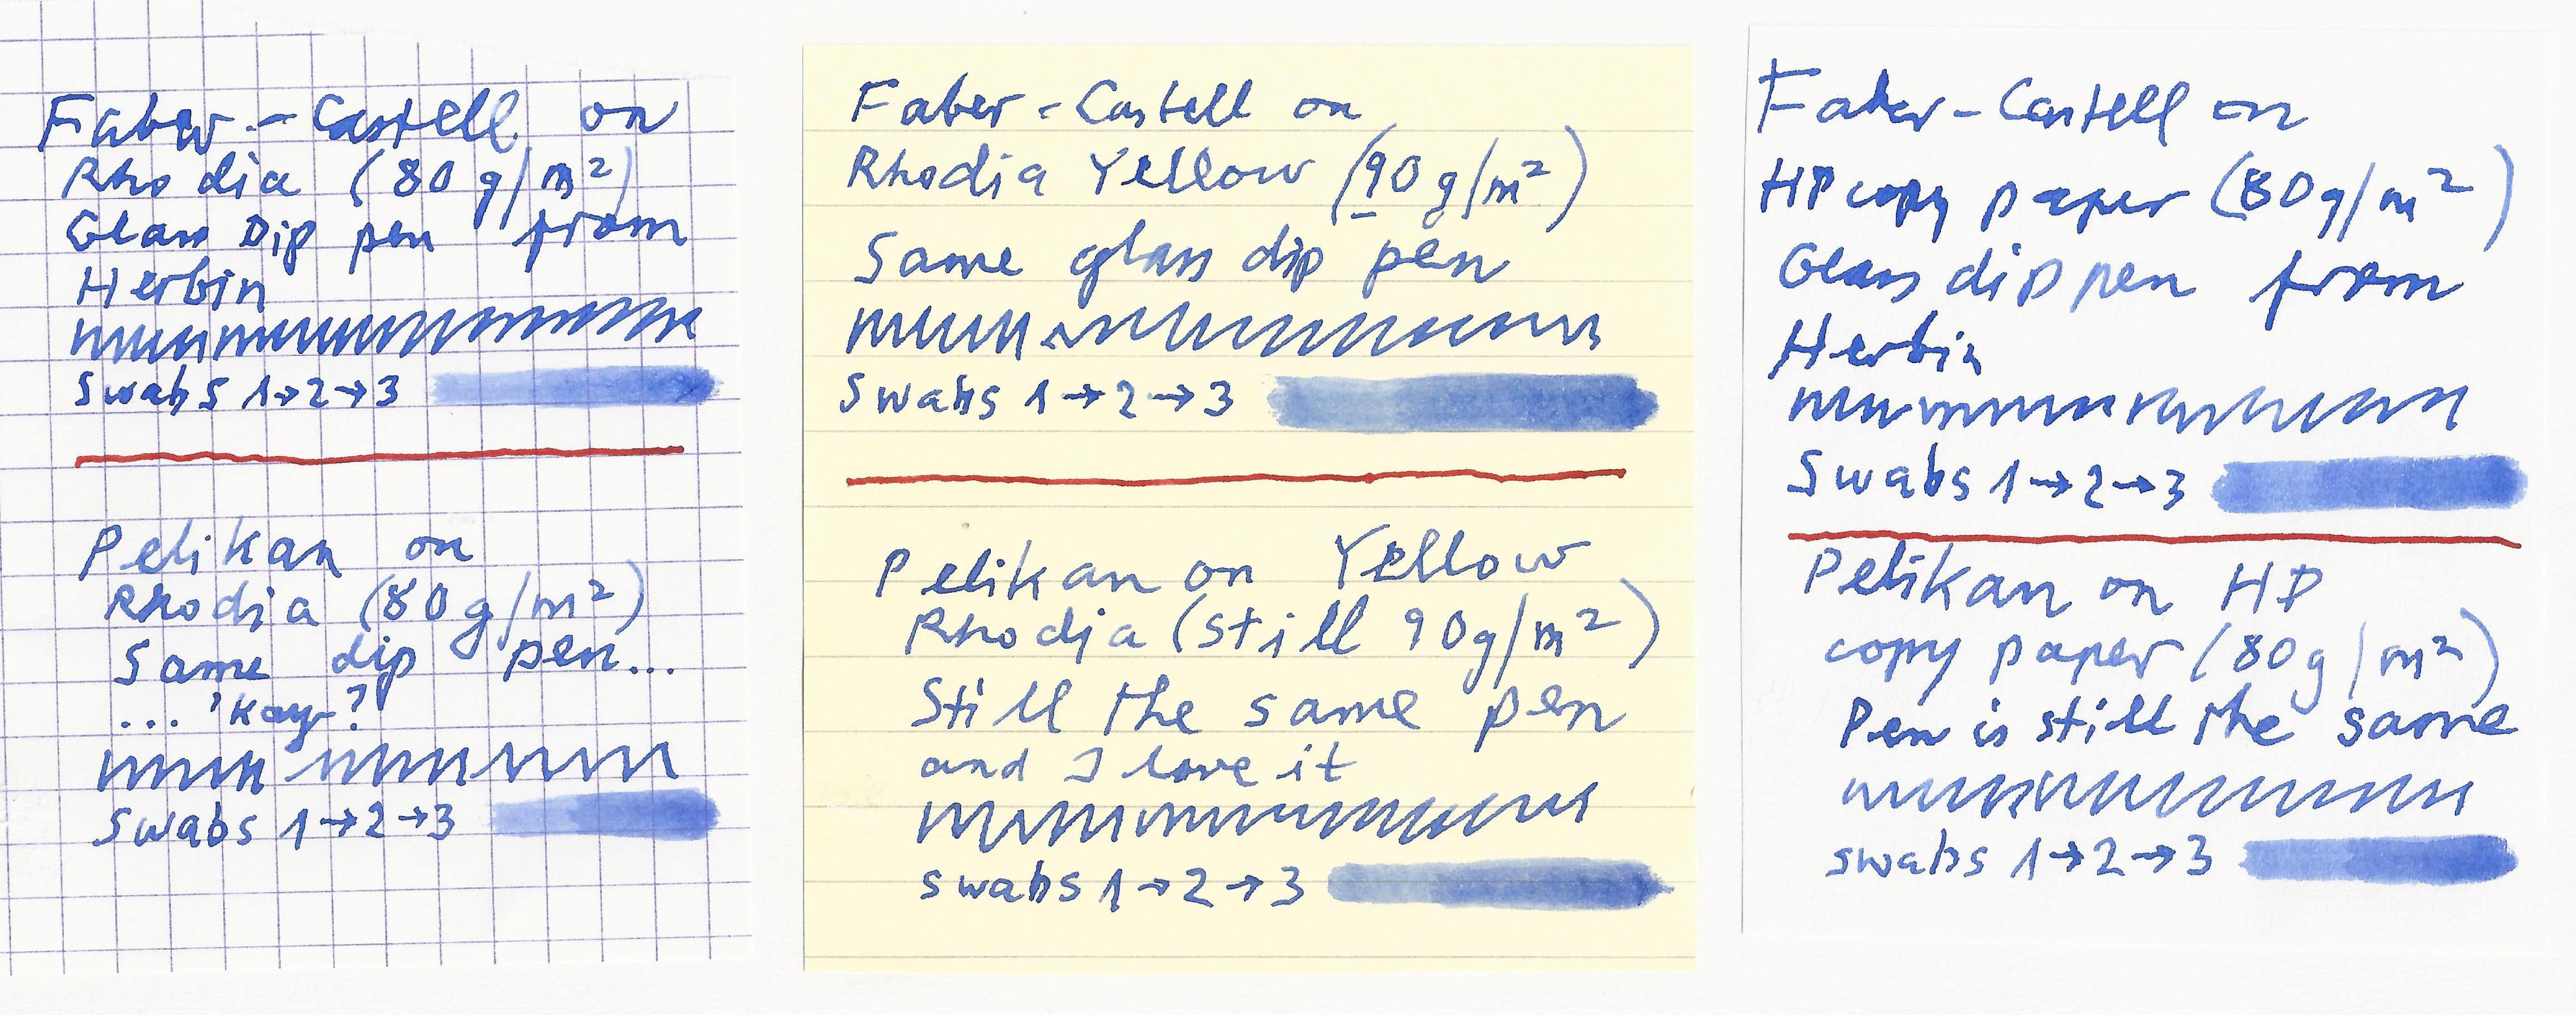 Faber-Castell on
Rhodia (80 g/m²)
Glass Dip pen from
Herbin
Swabs 1→2→3
Pelikan on
Rhodia (80 g/m²)
Same dip pen...
... 'kay?
Swabs 1→2→3
Faber-Castell on
Rhodia Yellow (90 g/m²)
Same glass dip pen
Swabs 1→2→3
Pelikan on Yellow
Rhodia (still 90g/m²)
Still the same pen
and I love it
swabs 1→2→3
Faber-Castell on
HP copy paper (80g/m²)
Glass dip pen from
Herbin
Swabs 1→2→3
Pelikan on HP
copy paper (80g/m²)
Pen is still the same
swabs 1→2→3